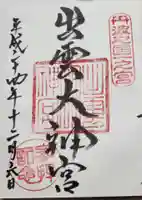 丹波國一之宮
出雲大神宮
平成廿四年十二月六日